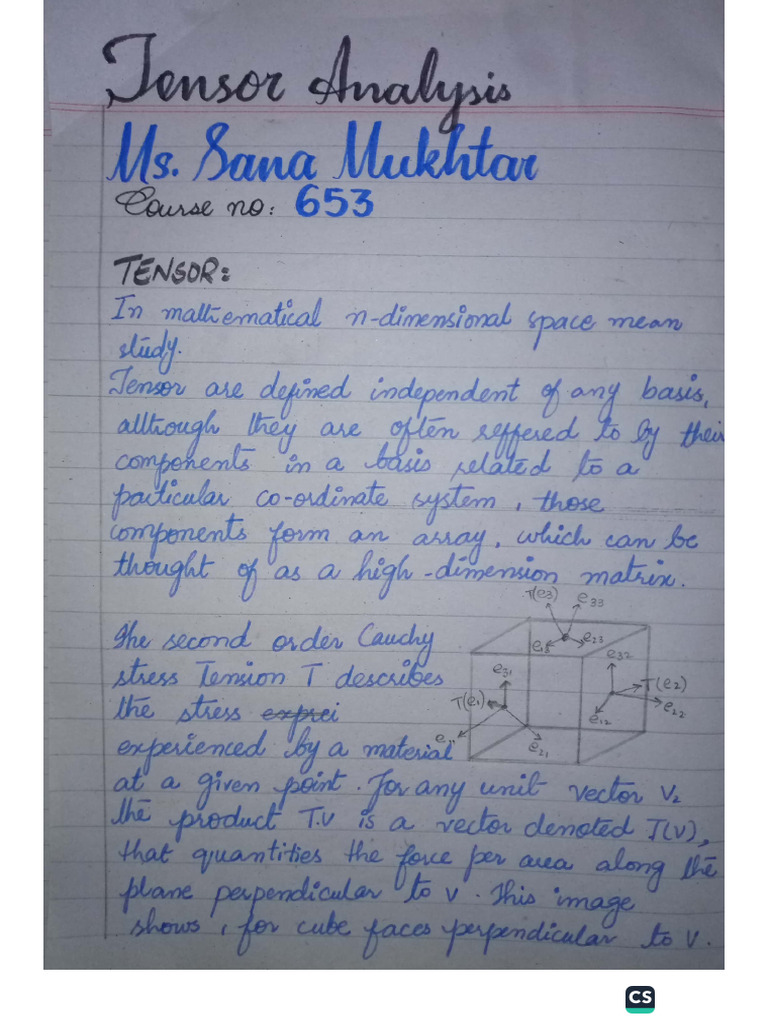 Tensor Analysis
Ms. Sana Mukhtar
Course no: 653
TENSOR:
In mathematical n-dimensional space mean
study.
Tensor are defined independent of any basis,
although they are often reffered to by their
components in a basis related to a
particular co-ordinate system, those
components form an array, which can be
thought of as a high-dimension matrix.
T(e3) e33
e13 e23
The second order Cauchy
e32
stress Tension T describes
e31
T(e2)
T(e1)
e22
e12
the stress exprei
e21
experienced by a material
at a given point. For any unit vector v,
the product T.v is a vector denoted T(v),
that quantities the force per area along the
plane perpendicular to v. This image
shows, for cube faces perpendicular to v.
CS